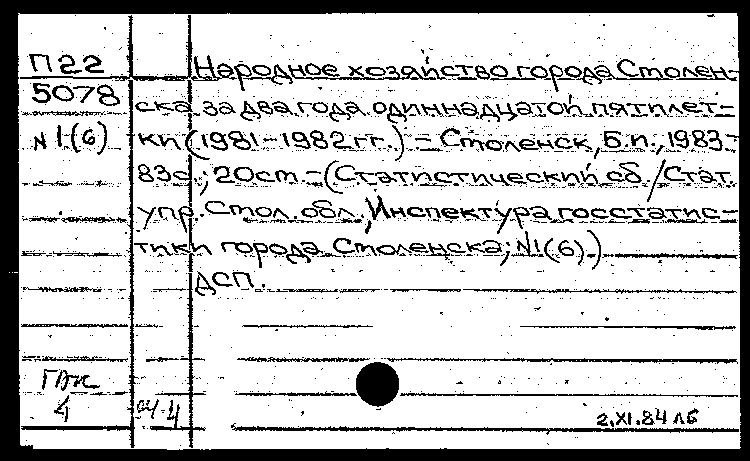 П22
5078
N 1.(6)
Народное хозяйство города Смолен-
ска за два года одиннадцатой пятилет-
ки (1981-1982 гг.) – Смоленск, Б.и., 1983-
83с.; 20см – (Статистический сб./Стат.
упр. Смол. обл., Инспектура госстатис-
тики города Смоленска; N1(6).)
ДСП.
4
04-4
2.XI.84 ЛБ